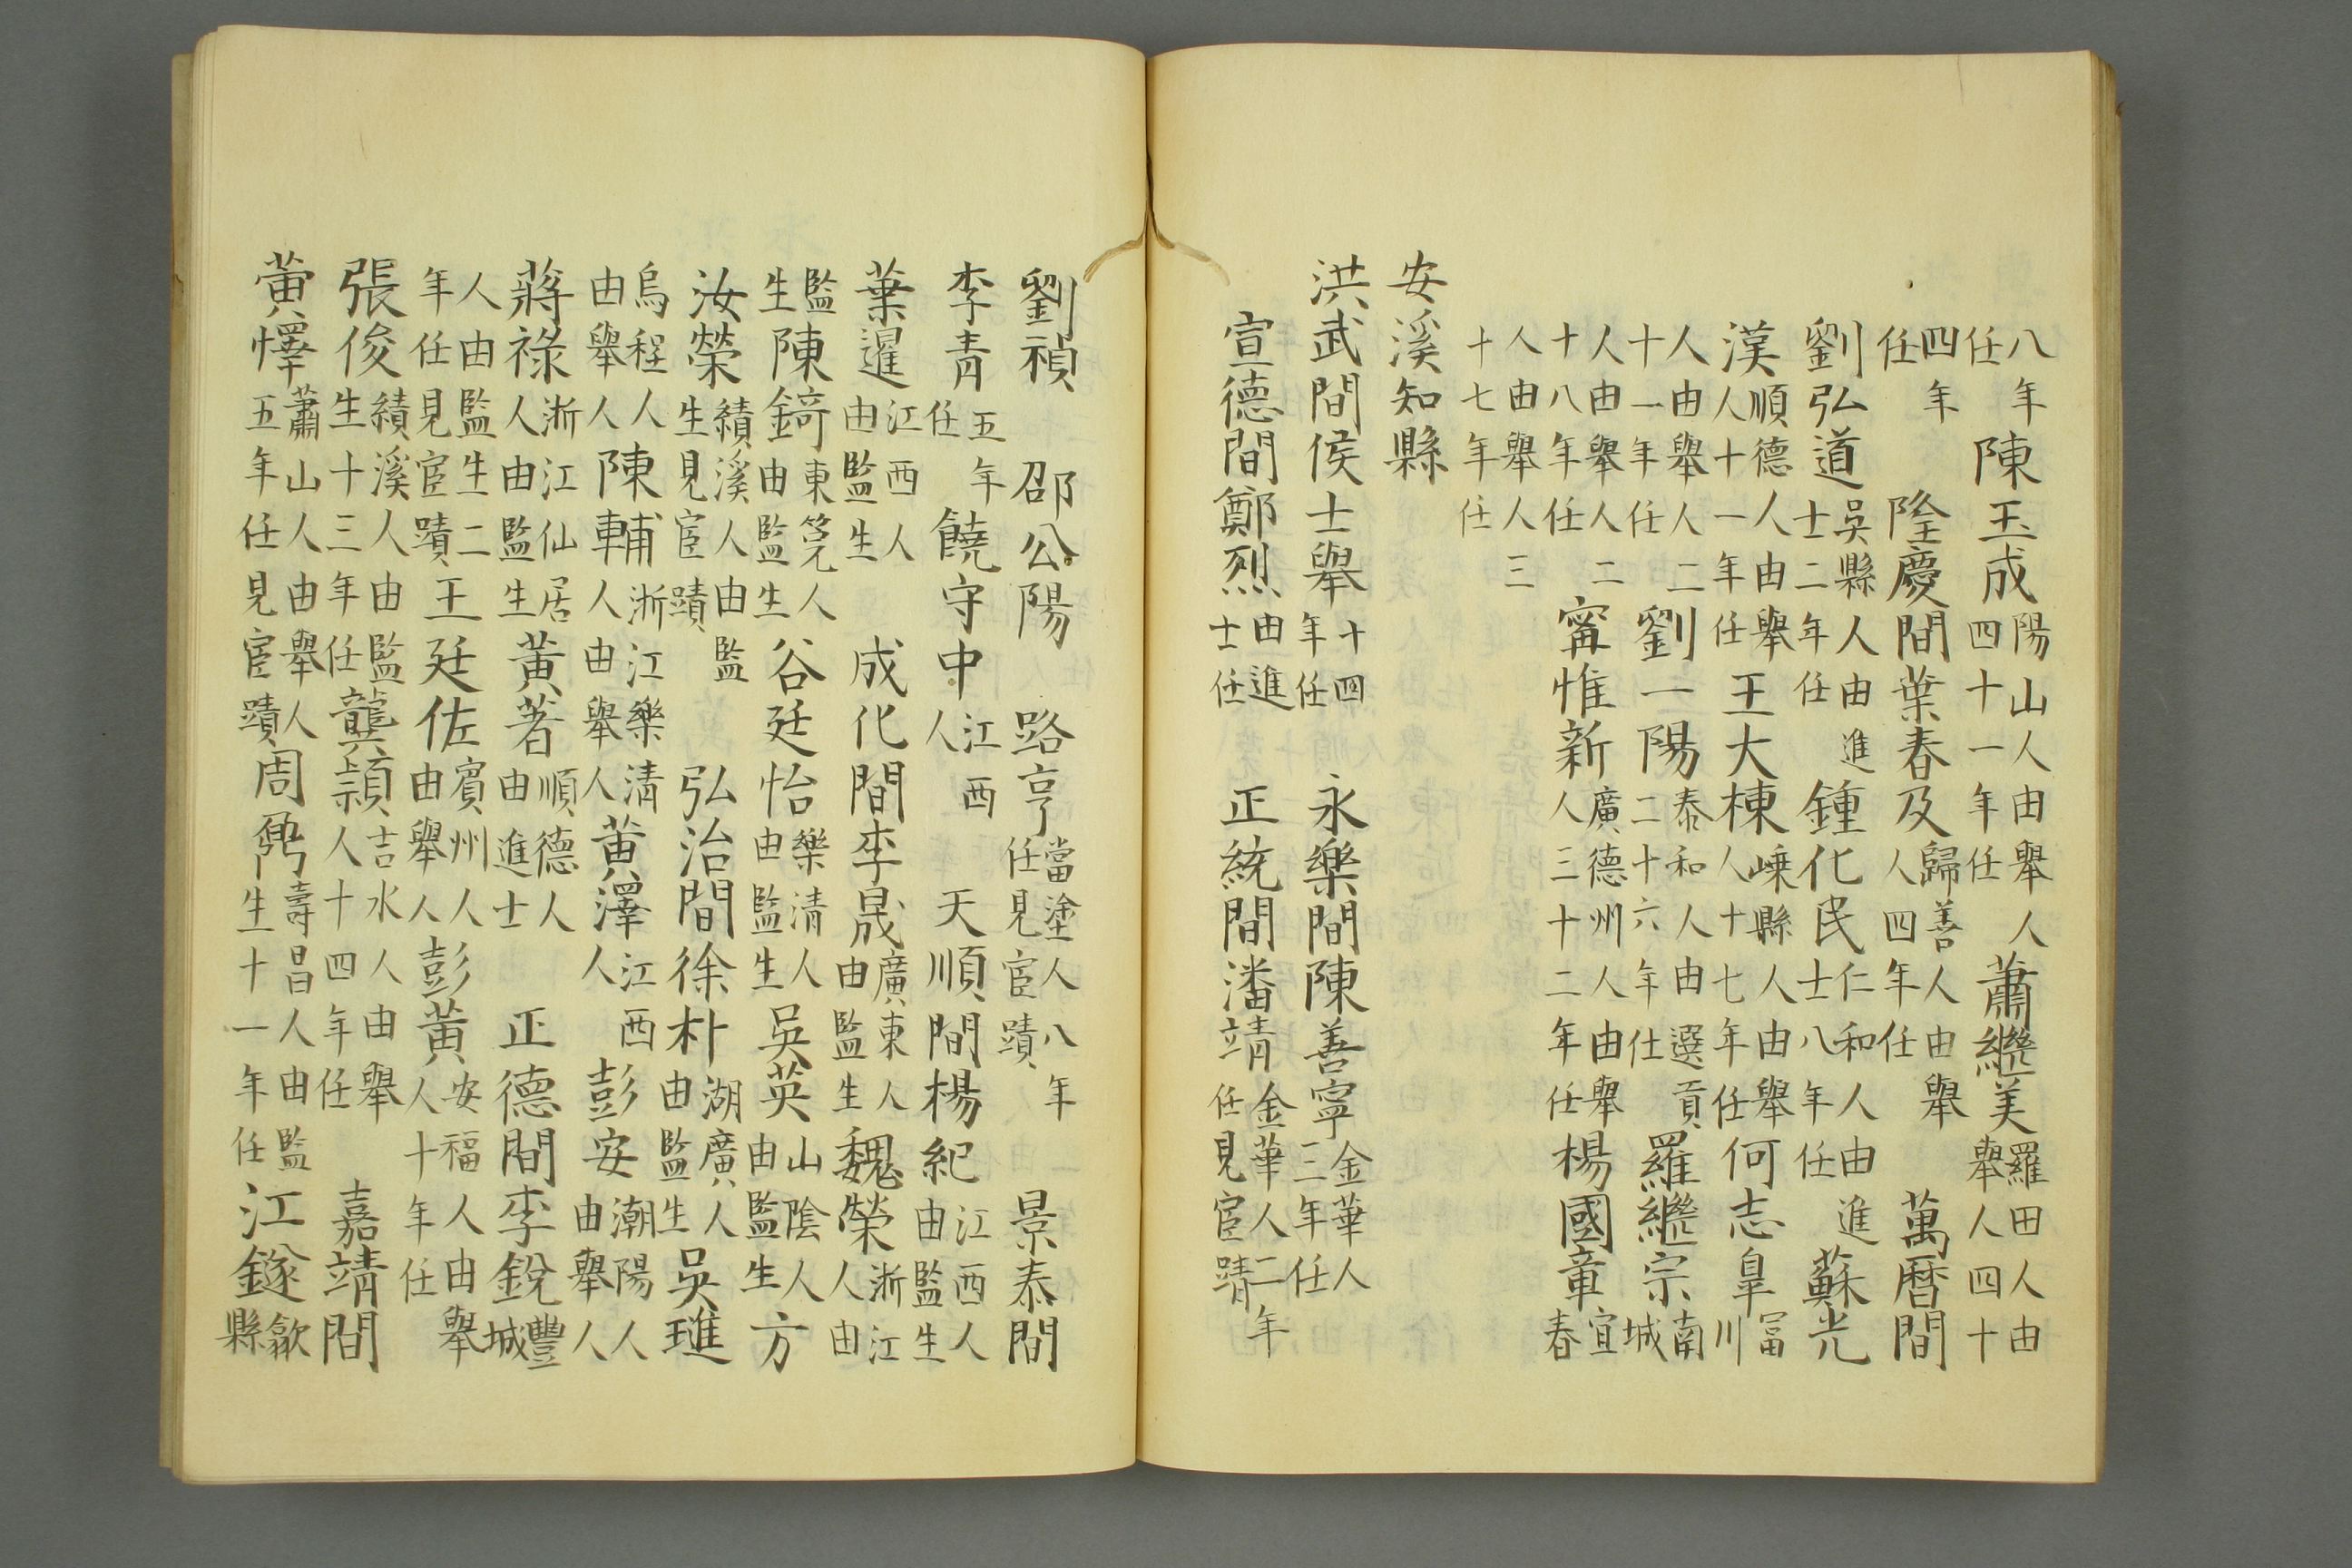 八年任陳玉成陽山人由舉人四十一年任蕭繼美羅田人由舉人四十
四年任隆慶間葉春及歸善人由舉人四年任萬曆間
劉弘道吳縣人由進士二年任鍾化民仁和人由進士八年任蘇光
漢順德人由舉人十一年任王大棟嵊縣人由舉人十七年任何志皐富川
人由舉人二十一年任劉一陽泰和人由選貢二十六年仕羅繼宗南城
人由舉人二十八年任甯惟新廣德州人由舉人三十二年任楊國章宜春
人由舉人三十七年任
安溪知縣
洪武間侯士舉十四年任永樂間陳善寧金華人三年任
宣德間鄭烈由進士任正統間潘靖金華人二年任見宦蹟
劉禎邵公陽路亨當塗人八年任見宦蹟景泰間
李青五年任饒守中江西人天順間楊紀江西人由監生
葉暹江西人由監生成化間李晟廣東人由監生魏榮浙江人由
監生陳錡東筦人由監生谷廷怡樂清人由監生吳英山陰人由監生方
汝榮績溪人由監生見宦蹟弘治間徐朴湖廣人由監生吳璡
烏程人由舉人陳輔浙江樂清人由舉人黃澤江西人彭安潮陽人由舉人
蔣祿浙江仙居人由監生黃著順德人由進士正德間李銳豐城
人由監生二年任見宦蹟王廷佐賓州人由舉人彭黃安福人由舉人十年任
張俊績溪人由監生十三年任龔頴吉水人由舉人十四年任嘉靖間
黃懌蕭山人由舉人五年任見宦蹟周壽昌人由監生十一年任江鐩歙縣